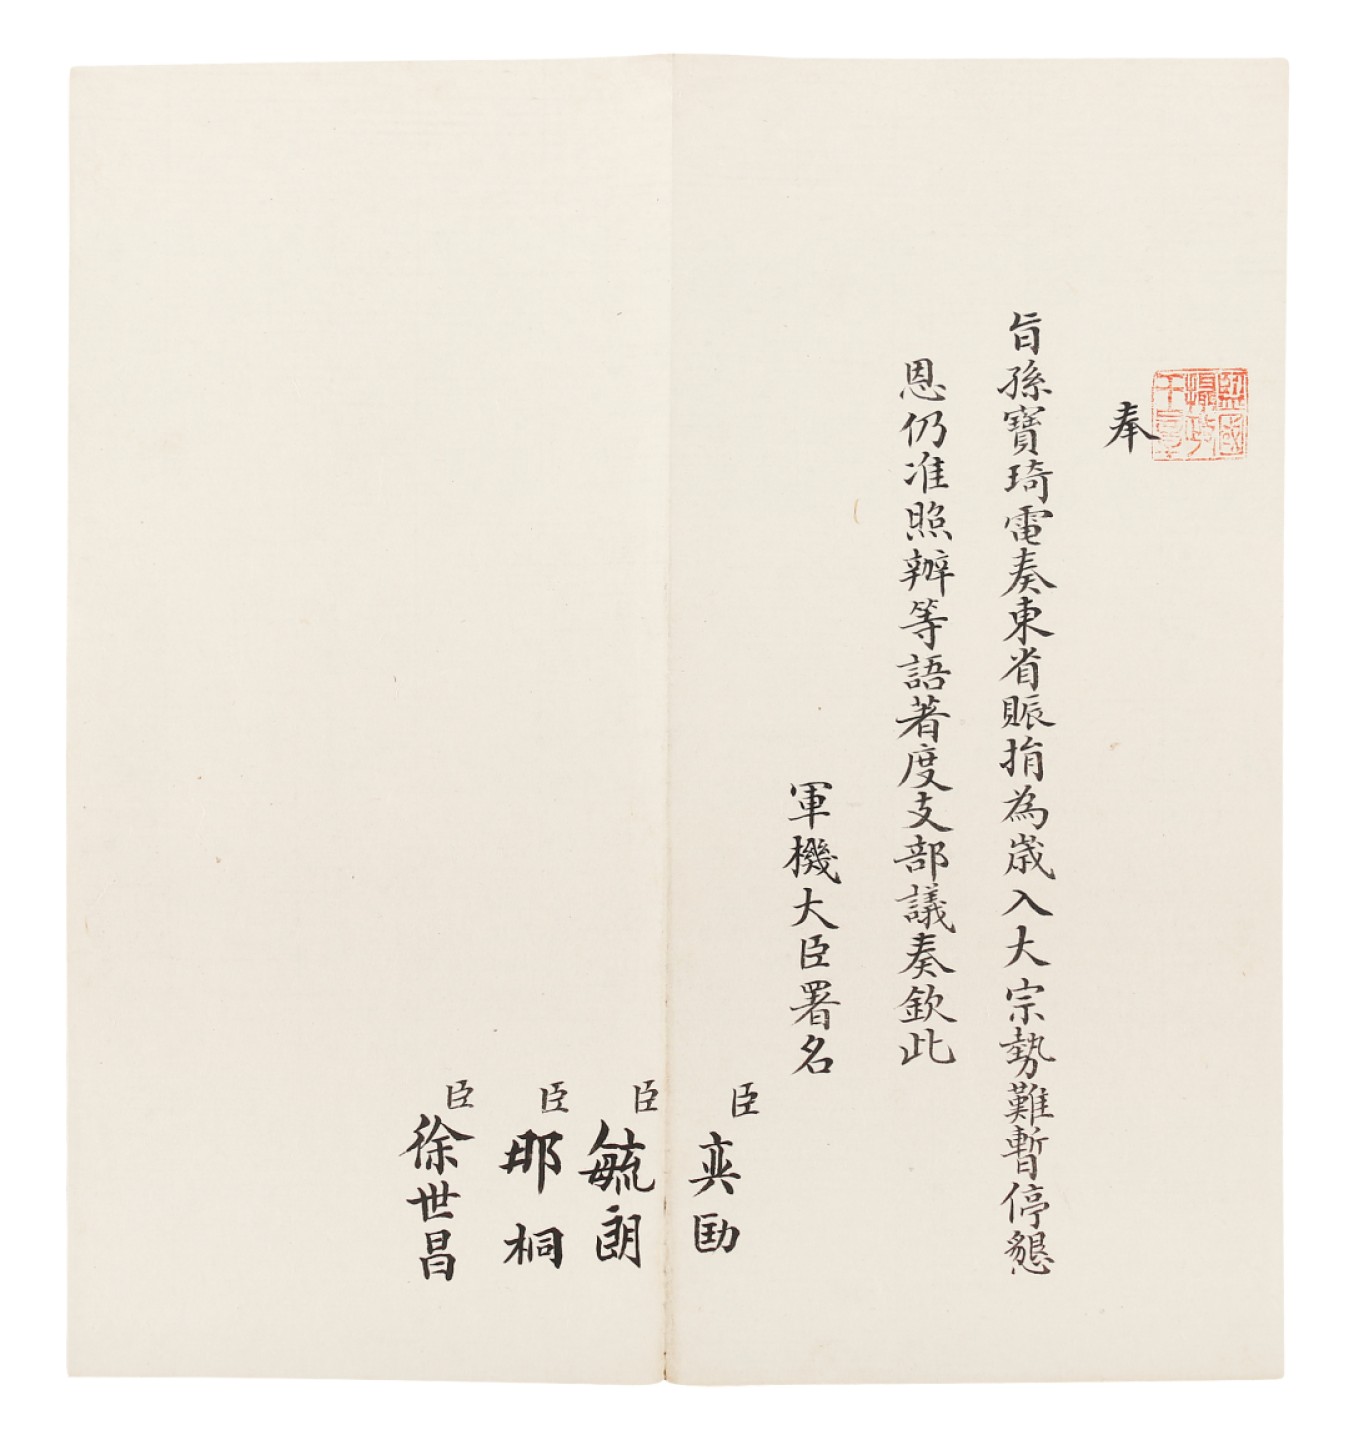 監國攝政王章
奉
旨孫寶琦電奏東省賑捐為歲入大宗勢難暫停懇
恩仍准照辦等語著度支部議奏欽此
軍機大臣署名
臣奕劻
臣毓朗
臣那桐
臣徐世昌